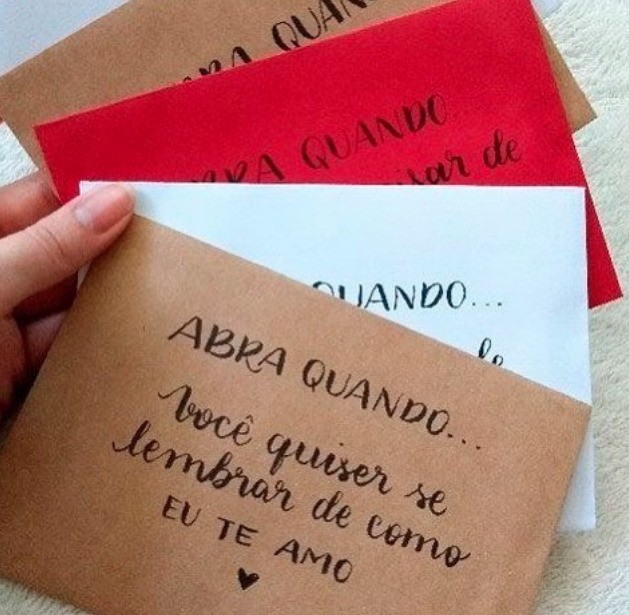 ABRA QUANDO
ABRA QUANDO
quisar de
QUANDO...
de
ABRA QUANDO...
você quiser se
lembrar de como
EU TE AMO